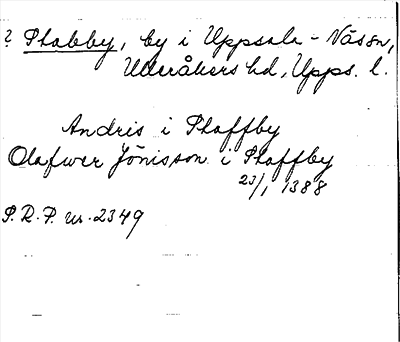 ? Stabby, by i Uppsala-Näs sn,
Ulleråkers hd, Upps. l.
Andris i Staffby
Olafwer Jönisson i Staffby
23/1 1388
S.R.P. nr. 2349